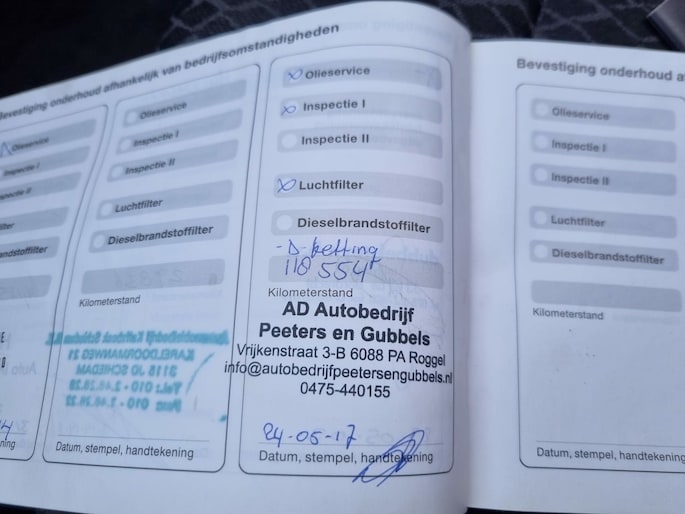 Bevestiging onderhoud afhankelijk van bedrijfsomstandigheden
Olieservice
Inspectie I
Inspectie II
filter
andstoffilter
Olieservice
Inspectie I
Inspectie II
Luchtfilter
Dieselbrandstoffilter
Kilometerstand
KARELDOORMANWEG 21
3115 JD SCHIEDAM
Datum, stempel, handtekening
Olieservice
Inspectie I
Inspectie II
Luchtfilter
Dieselbrandstoffilter
-D-ketting
118554
Kilometerstand
AD Autobedrijf
Peeters en Gubbels
Vrijkenstraat 3-B 6088 PA Roggel
info@autobedrijfpeetersengubbels.nl
0475-440155
24-05-17
Datum, stempel, handtekening
Bevestiging onderhoud a
Olieservice
Inspectie I
Inspectie II
Luchtfilter
Dieselbrandstoffilter
Kilometerstand
Datum, stempel, handtekening